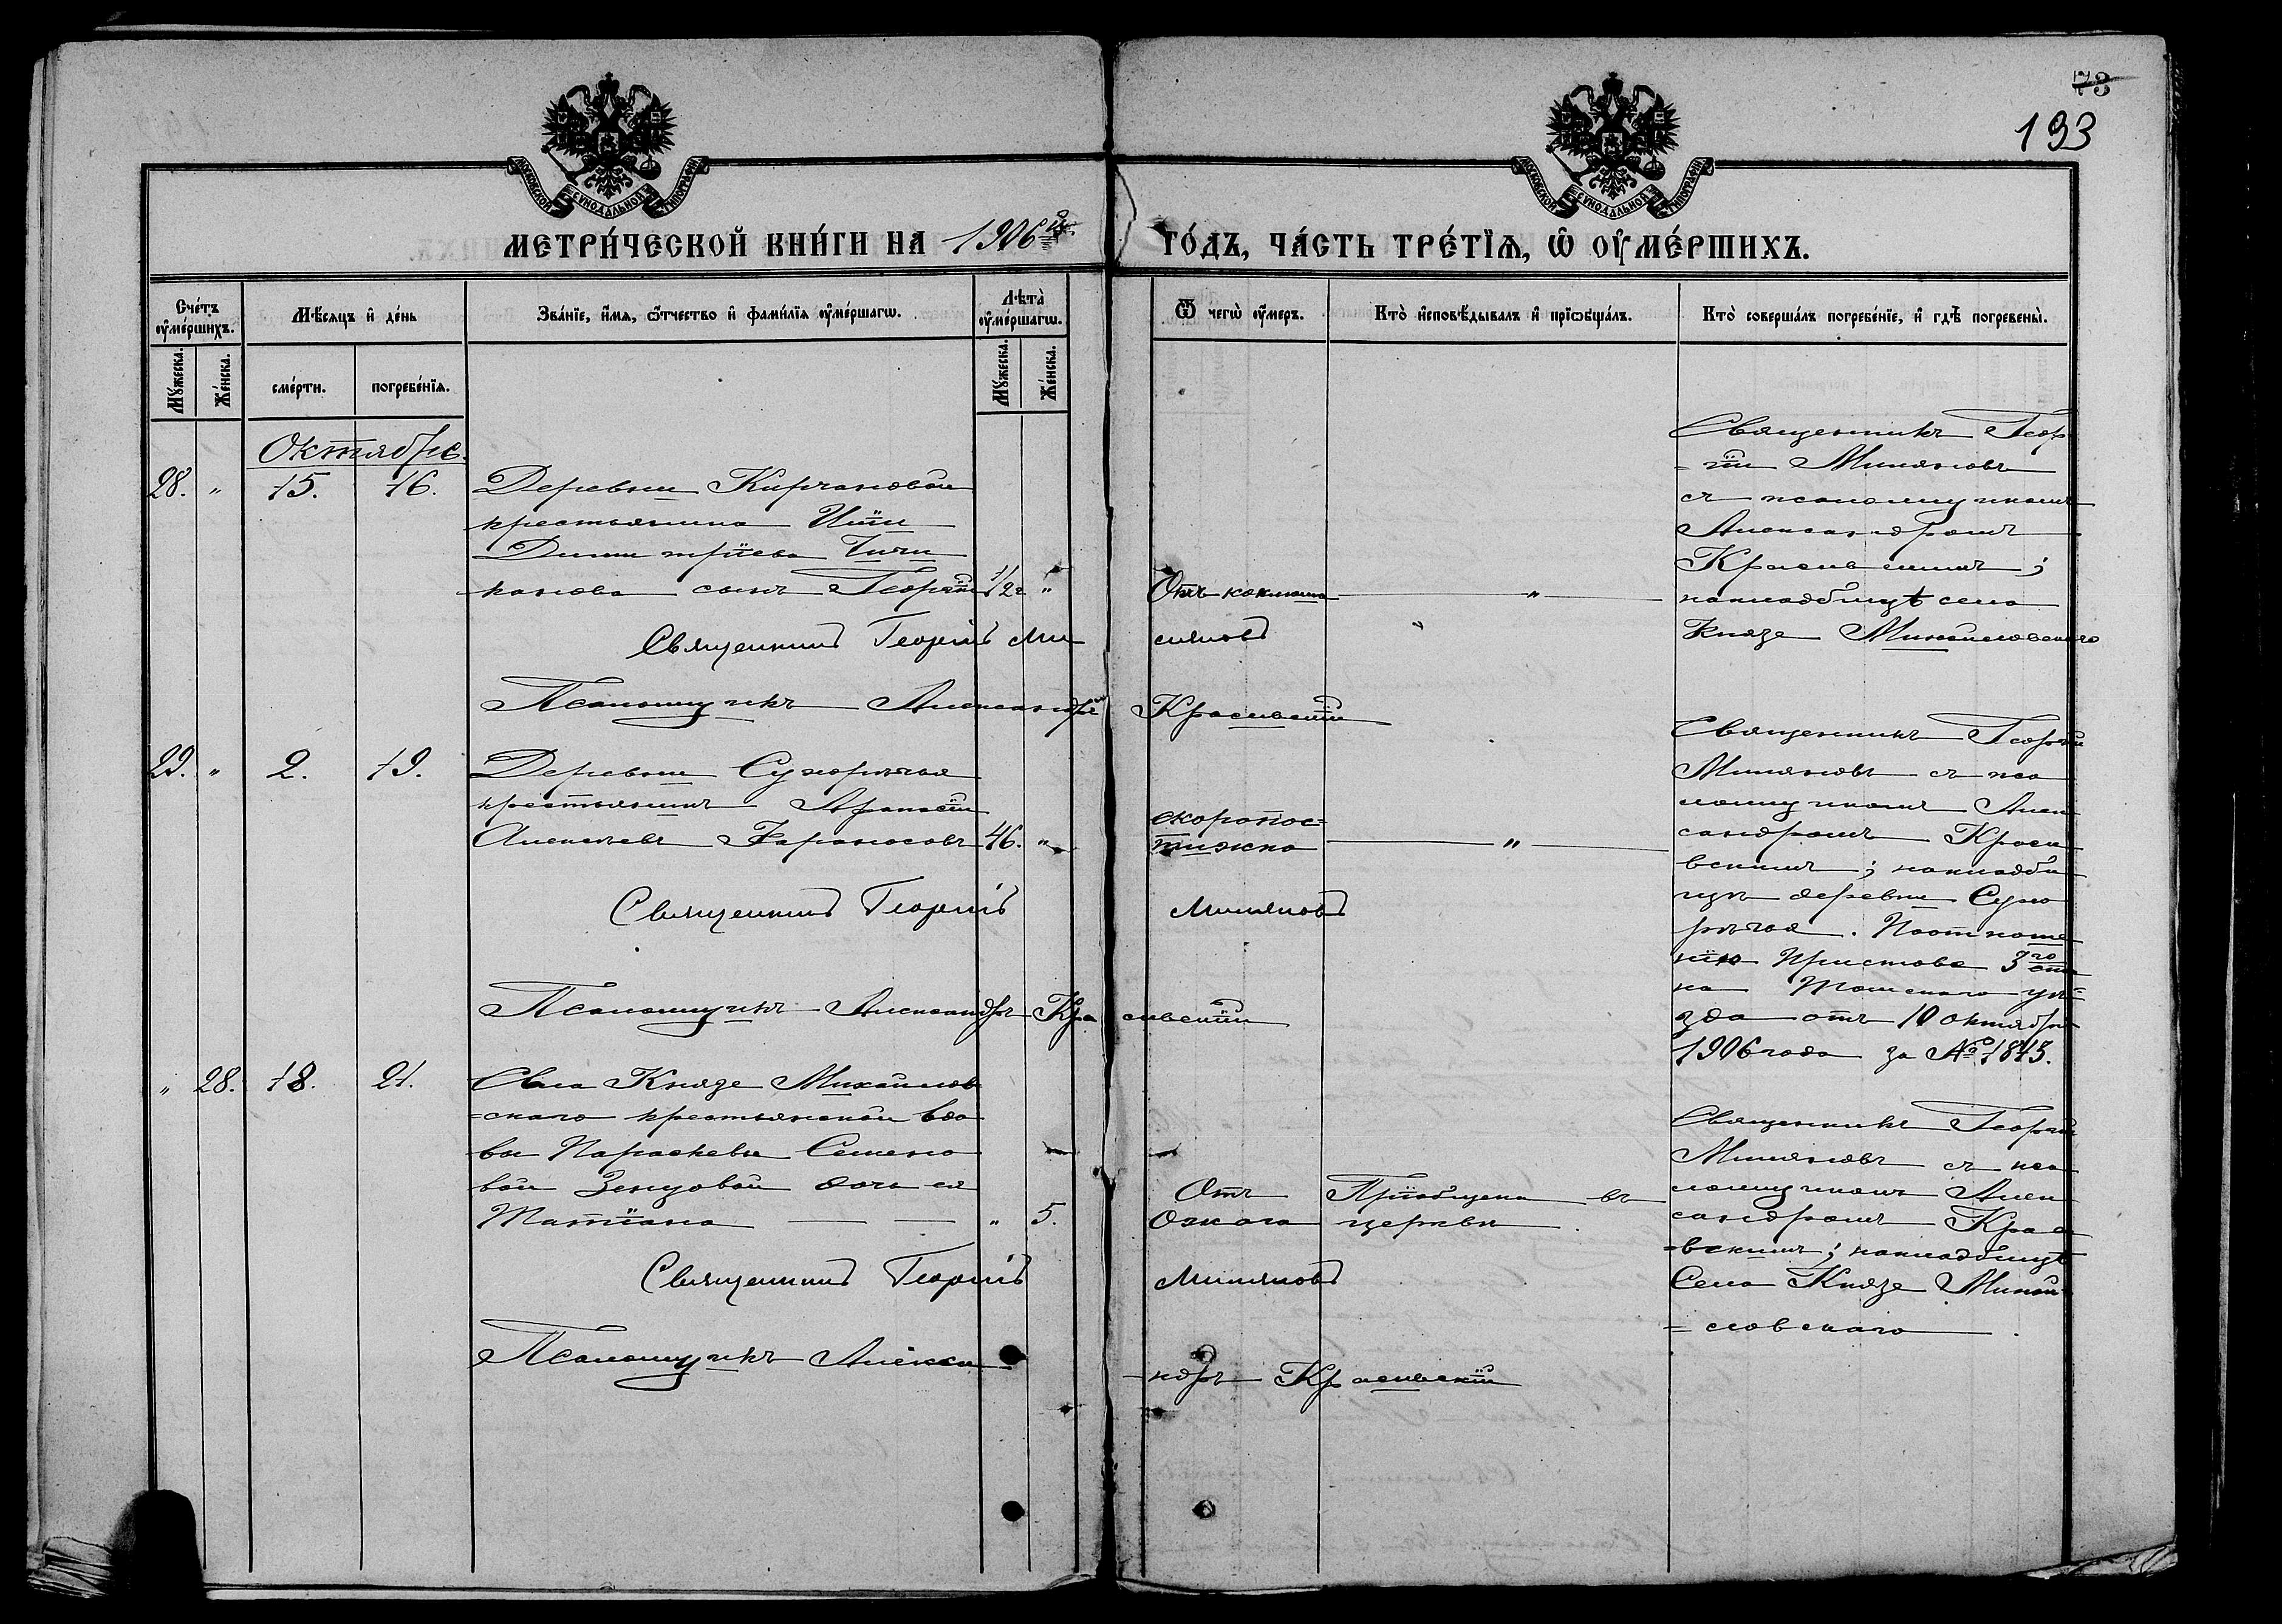 193
МОСКОВСКОЙ СѴНОДАЛЬНОЙ ТИПОГРАФІИ
МОСКОВСКОЙ СѴНОДАЛЬНОЙ ТИПОГРАФІИ
МЕТРИ́ЧЕСКОЙ КНИ́ГИ НА 1906й
ГО́ДЪ, ЧА́СТЬ ТРЕ́ТЇѦ, Ѡ ОУ҆МЕ́РШИХЪ.
Сче́тъ оу҆ме́ршихъ.
Мѣ́сяцъ и҆ де́нь
Зва́нїе, и҆́мѧ, ѻ҆́тчество и҆ фами́лїѧ оу҆ме́ршагѡ.
Лѣ̀та̀ оу҆ме́ршагѡ.
Ѿ чегѡ̀ оу҆́меръ.
Кто̀ и҆сповѣ́дывалъ и҆ прїѻбща́лъ.
Кто̀ соверша́лъ погребе́нїе, и҆ гдѣ̀ погребены̀.
Мꙋ́жеска.
Же́нска.
сме́рти.
погребе́нїѧ.
Мꙋ́жеска.
Же́нска.
Октябрь.
28. " 15. 16.
Деревни Кирчановой
крестьянина Иліи
Димитріева Чичи
канова сынъ Георгій 1/2 г "
Отъ коклюша "
Священникъ Геор
=гій Миняковъ
съ псаломщикомъ
Александромъ
Красивскимъ;
на кладбищѣ села
Князе Михайловскаго
Священникъ Георгій Ми няковъ
Псаломщикъ Александръ Красивскій
29. " 2. 19.
Деревни Сухорѣчья
крестьянинъ Афанасій
Алексѣевъ Фараносовъ 46. "
скоропос=
тижно "
Священникъ Георгій
Миняковъ съ пса
ломщикомъ Алек
сандромъ Краси
вскимъ; на кладби
щѣ деревни Сухо
рѣчья. По отноше
нію Пристава 3го ста
на Томскаго уѣ=
зда отъ 10 октября
1906 года за № 1845.
Священникъ Георгій Миняковъ
Псаломщикъ Александръ Кра сивскій
" 28. 18. 21.
Села Князе Михайлов
=скаго крестьянской вдо
вы Параскевы Семено
вой Зенцовой дочь ея
Татіана " 5.
Отъ
Ожога
Пріобщена въ
церкви.
Священникъ Георгій
Миняковъ съ пса
ломщикомъ Алек
сандромъ Краси
=вскимъ; на кладбищѣ
Села Князе Михай
=ловскаго.
Священникъ Георгій Миняковъ
Псаломщикъ Алекса
ндръ Красивскій